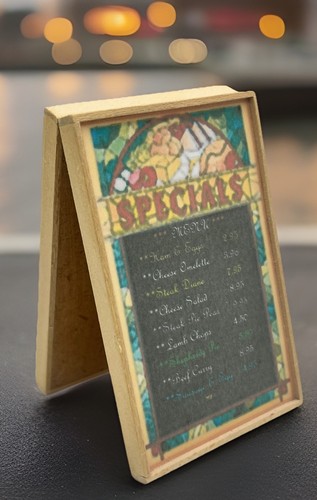 SPECIALS
*** MENU ***
**Ham & Eggs 7.95
**Cheese Omelette 5.95
**Steak Diane 7.95
**Cheese Salad 8.95
**Steak Pie Peas 5.95
**Lamb Chops 4.50
**Shepherds Pie
**Beef Curry 8.95